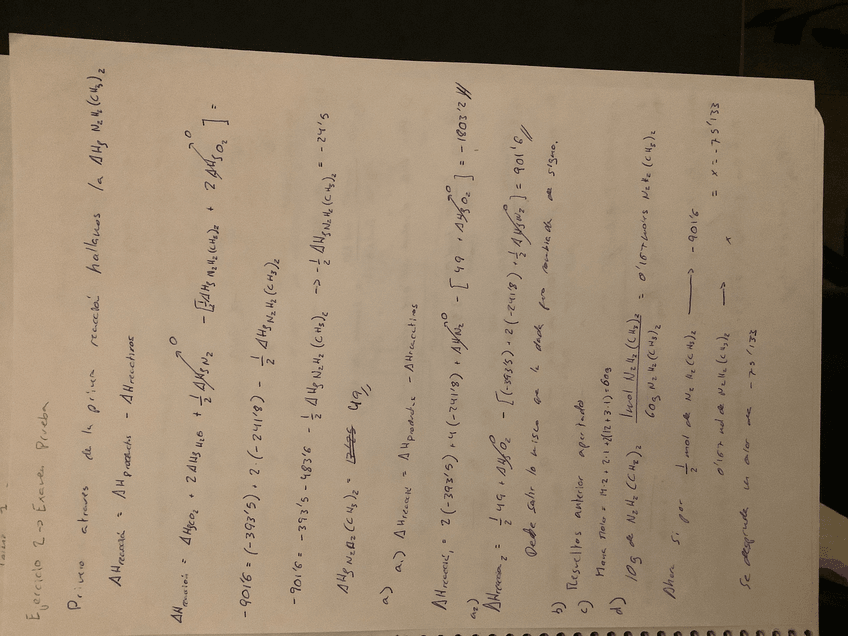 Ejercicio 2 → Examen Prueba
Primero atraves de la primera reacción hallamos la ΔHf N2H2(CH3)2
ΔHreacción = ΔHproductos - ΔHreactivos
ΔHreacción = ΔHfCO2 + 2 ΔHfH2O + 1/2 ΔHfN2 0 - [1/2 ΔHf N2H2(CH3)2 + 2 ΔHfO2 0 ] =
-901'6 = (-393'5) + 2·(-241'8) - 1/2 ΔHf N2H2(CH3)2
-901'6 = -393'5 - 483'6 - 1/2 ΔHf N2H2(CH3)2 → -1/2 ΔHf N2H2(CH3)2 = -24'5
ΔHf N2H2(CH3)2 = 49//
a) a.) ΔHreacción = ΔHproductos - ΔHreactivos
ΔHreacción1 = 2(-393'5) + 4(-241'8) + ΔHfN2 - [ 49 + ΔHfO2 0 ] = -1803'2 //
a2)
ΔHreaccion2 = 1/2 49 + ΔHfO2 0 - [(-393'5) + 2(-241'8) + 1/2 ΔHfN2 0 ] = 901'6 //
Debe salir lo mismo que la dada pero cambiada de signo.
b) Resueltos anterior apartado
c) Masa molar = 14·2 + 2·1 + 2(12+3·1) = 60g
d) 10g de N2H2(CH3)2 1mol N2H2(CH3)2 / 60g N2H2(CH3)2 = 0'167 moles N2H2(CH3)2
Ahora si por 1/2 mol de N2H2(CH3)2 → -901'6
0'167 mol de N2H2(CH3)2 → x = x = -75'133
Se desprende un calor de -75'133